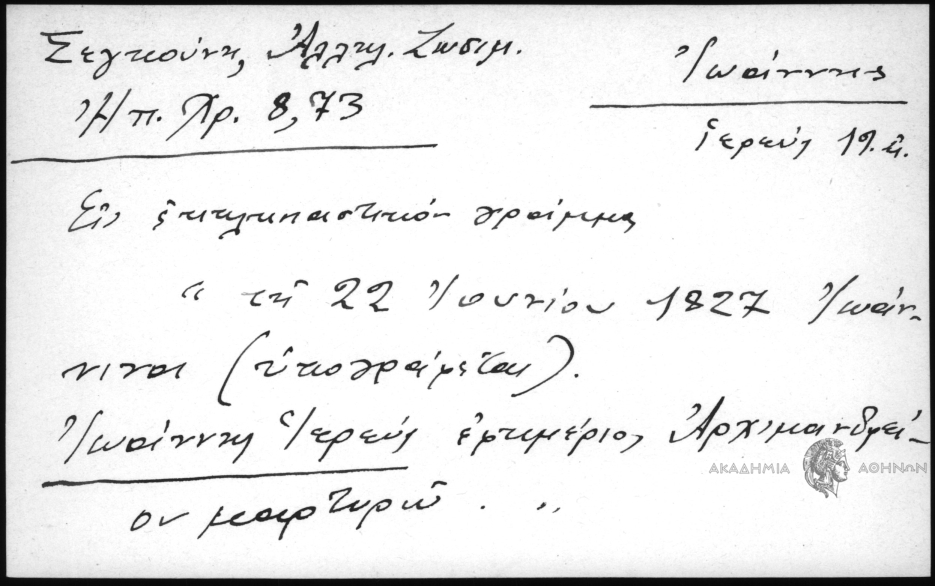 Σεγκούνη, Ἀλληλ. Ζωσιμ.
Ἠπ. Χρ. 8, 73
Ἰωάννης
ἱερεύς 19. αἰ.
Εἰς ἐκκλησιαστικόν γράμμα
“ τῇ 22 Ἰουνίου 1827 Ἰωάν-
νινα (ὑπογράφεται).
Ἰωάννης Ἱερεύς ἐφημέριος Ἀρχιμανδρεί-
ου μαρτυρῶ . . „
ΑΚΑΔΗΜΙΑ ΑΘΗΝΩΝ